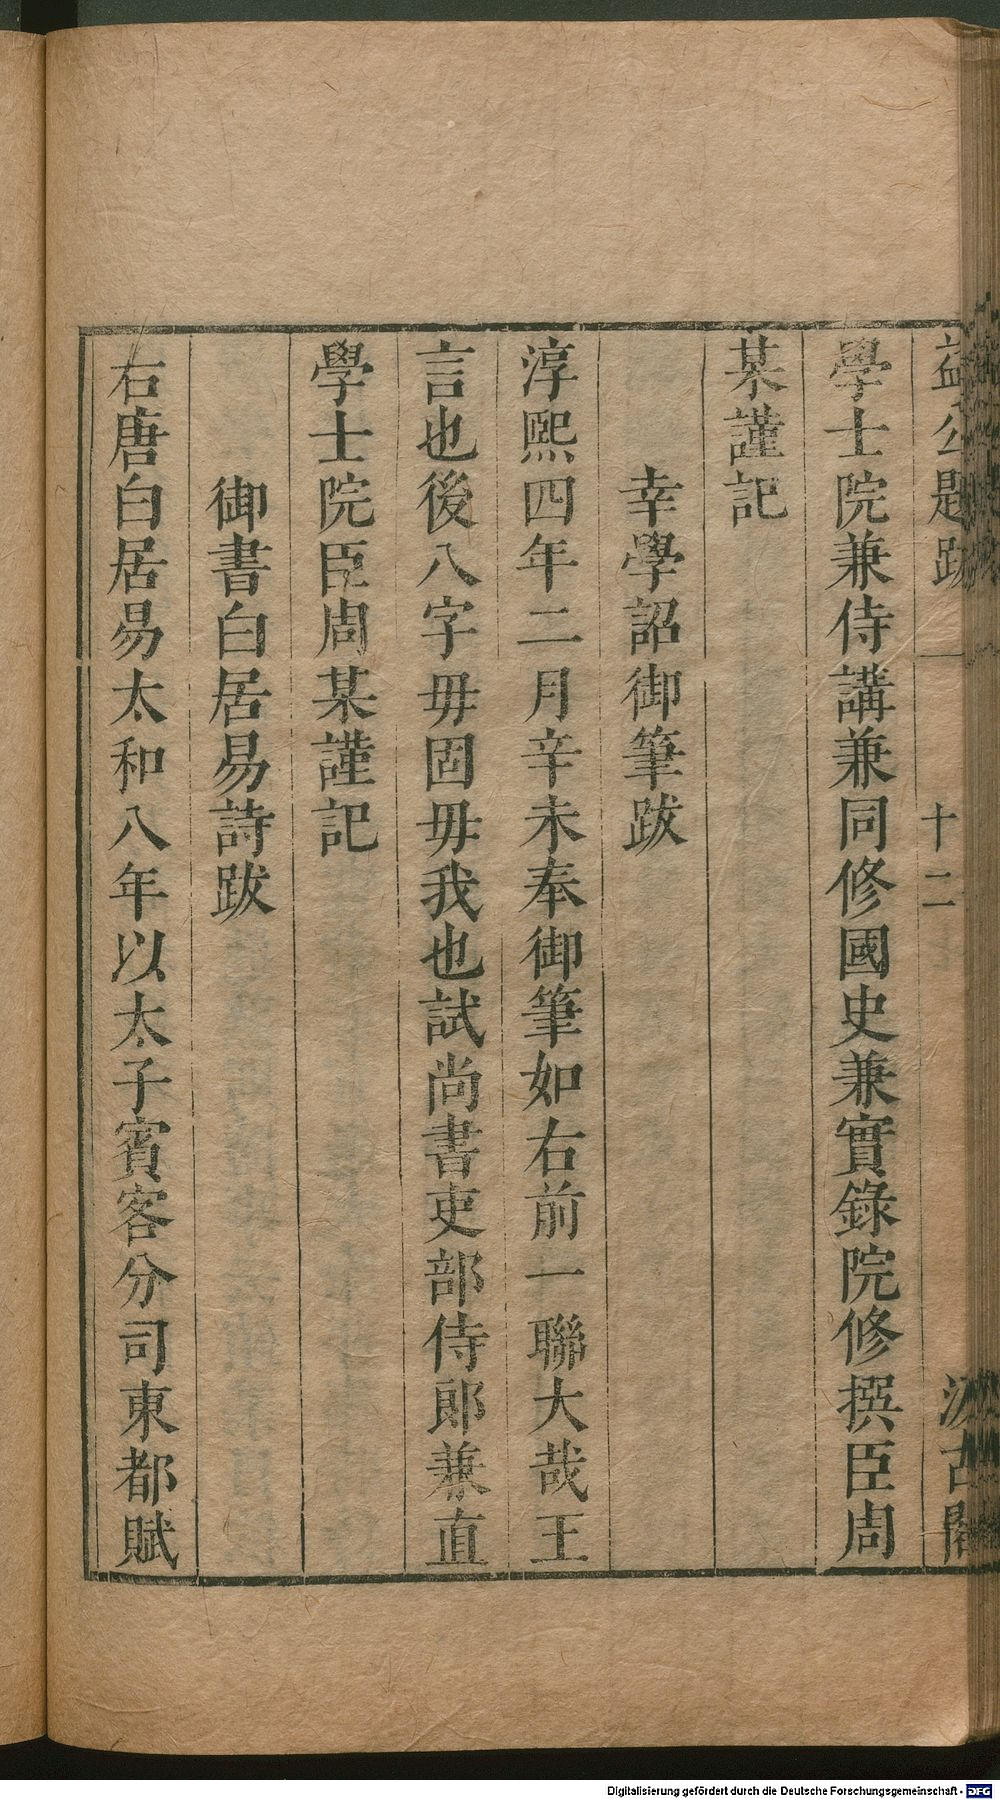 益公題跋 十二 汲古閣
學士院兼侍講兼同修國史兼實錄院修撰臣周
某謹記
幸學詔御筆跋
淳熙四年二月辛未奉御筆如右前一聯大哉王
言也後八字毋固毋我也試尚書吏部侍郞兼直
學士院臣周某謹記
御書白居易詩跋
右唐白居易太和八年以太子賓客分司東都賦
Digitalisierung gefördert durch die Deutsche Forschungsgemeinschaft - DFG